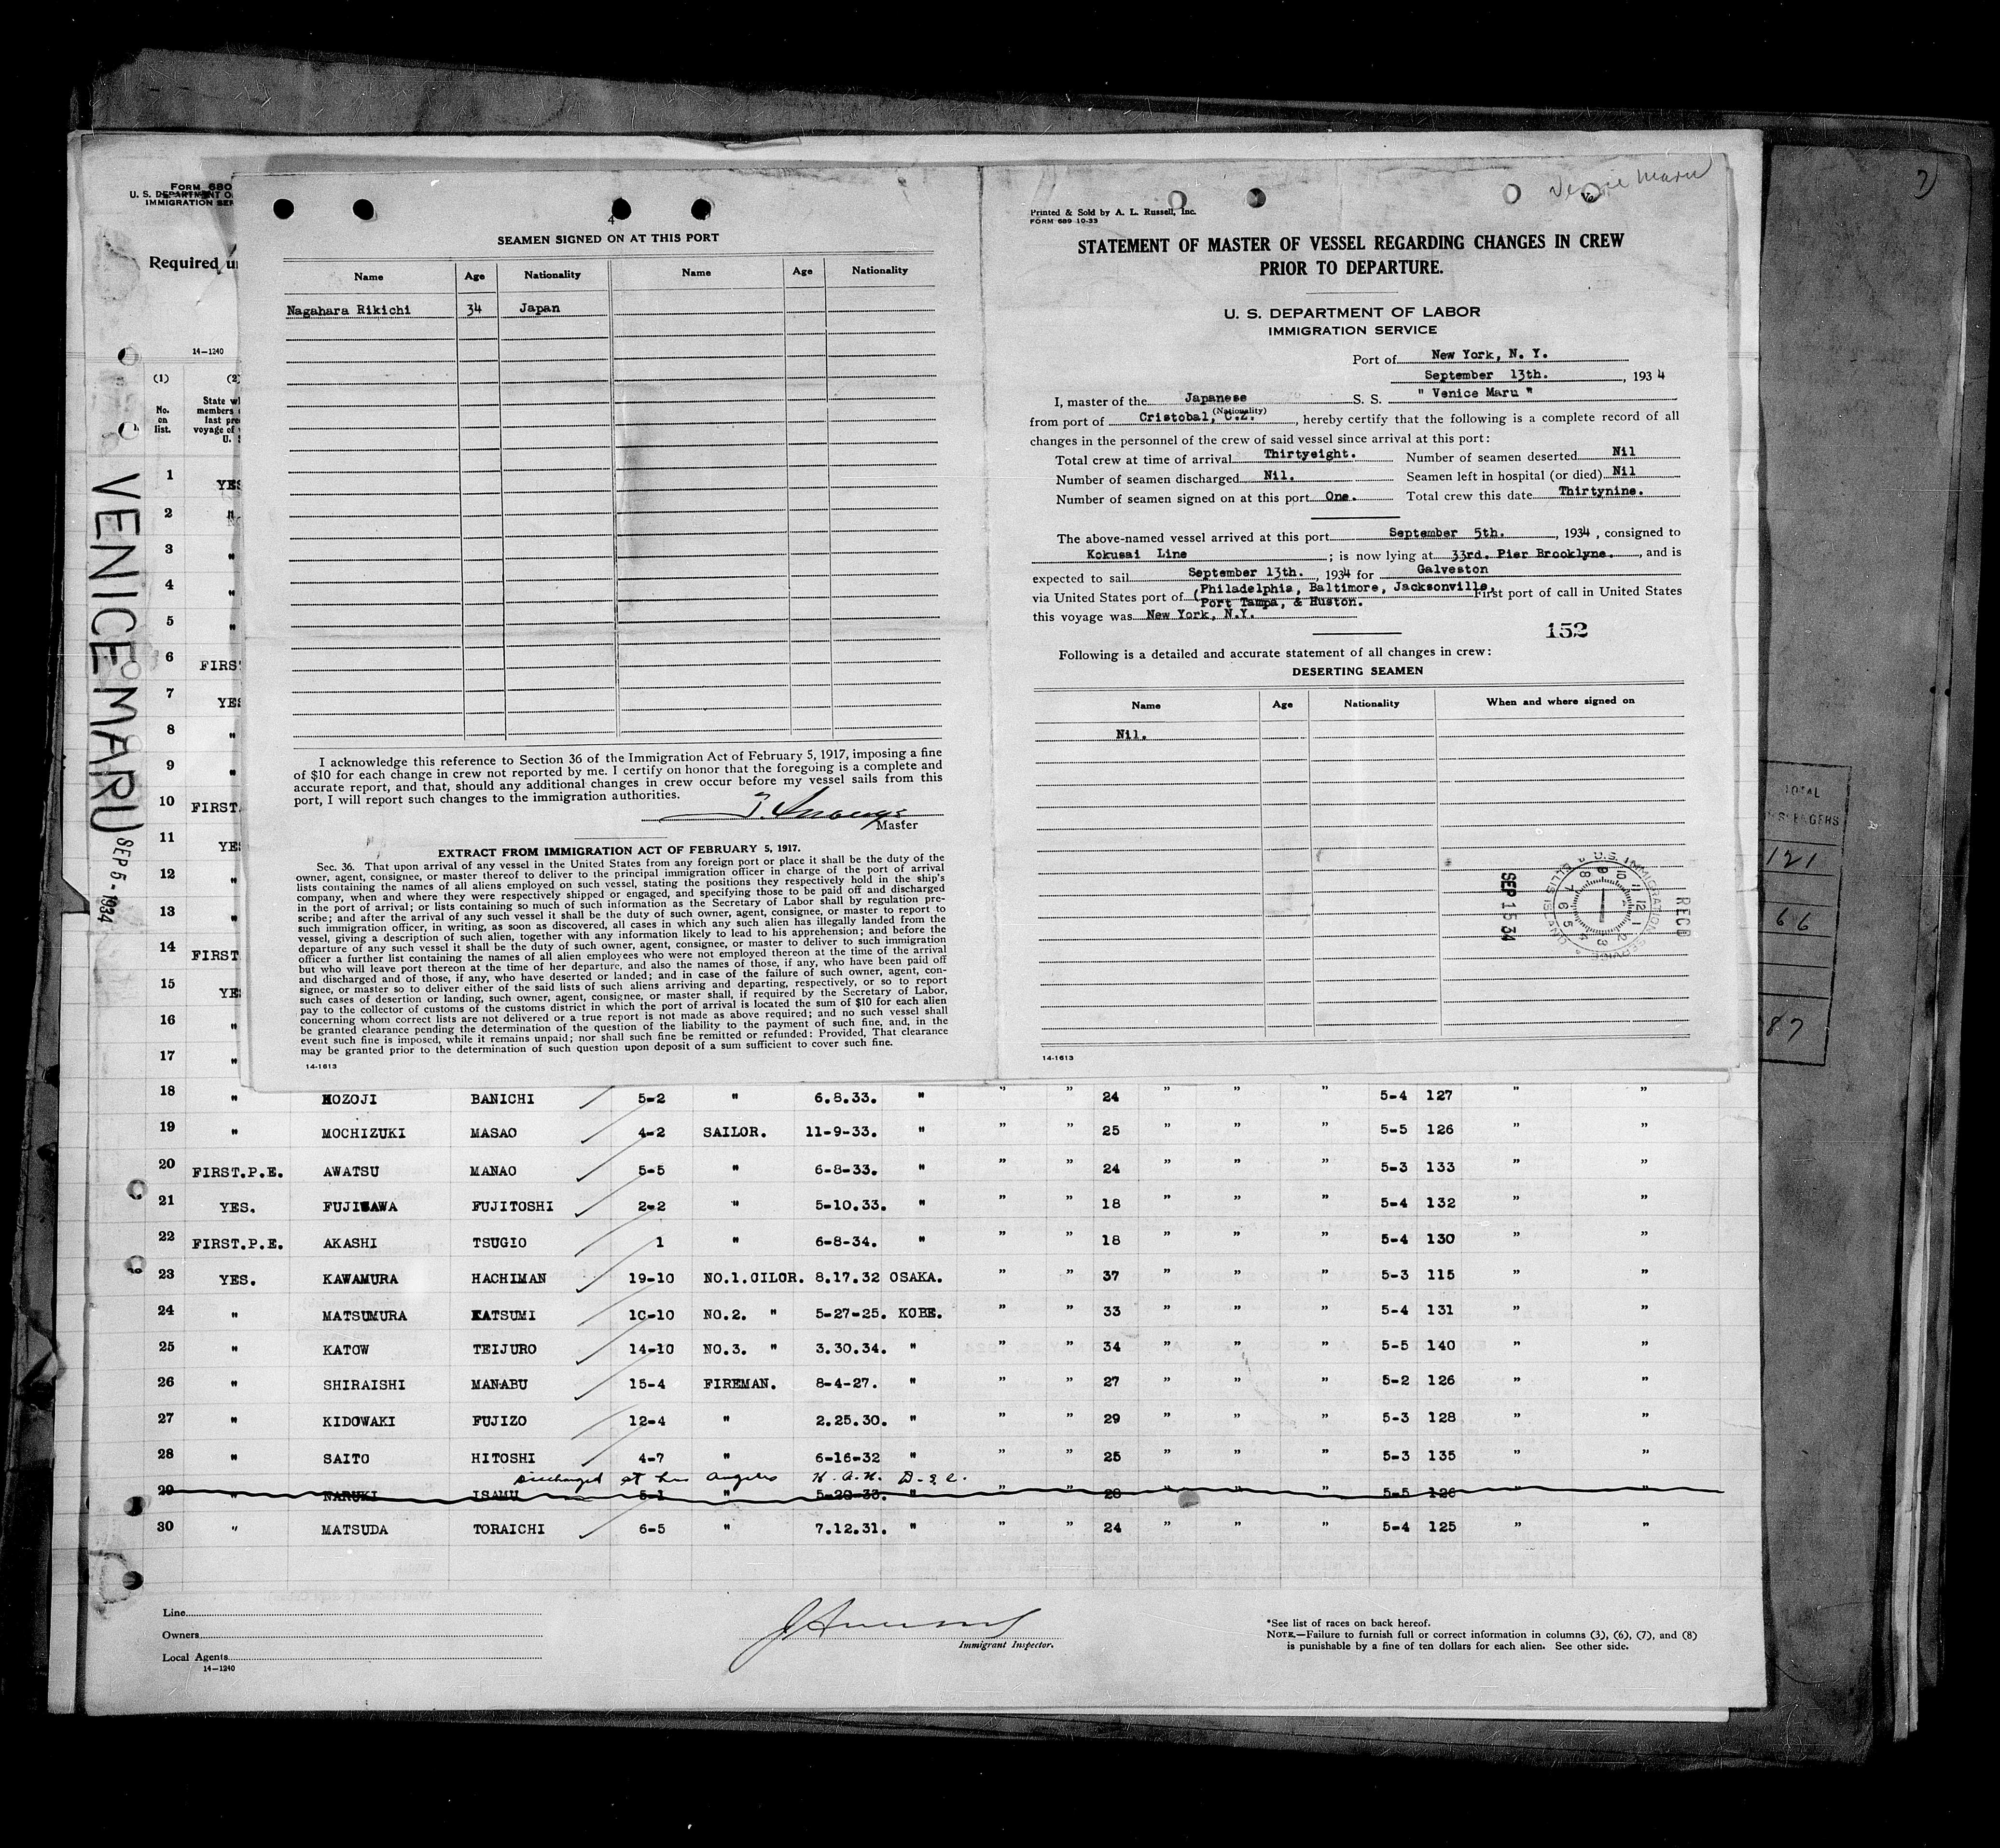 Form 680
U. S. DEPARTMENT O
IMMIGRATION SER
Required u
14—1240
(1)
(2)
No.
on
list.
State wh
members o
last pre
voyage of
U. S
VENICE MARU SEP 5 - 1934
1 YES
2 "
3 "
4 "
5 "
6 FIRST
7 YES
8 "
9 "
10 FIRST.
11 YE
12 "
13 "
14 FIRST
15 YE
16 "
17 "
4
SEAMEN SIGNED ON AT THIS PORT
Name Age Nationality Name Age Nationality
Nagahara Rikichi 34 Japan
I acknowledge this reference to Section 36 of the Immigration Act of February 5, 1917, imposing a fine
of $10 for each change in crew not reported by me. I certify on honor that the foregoing is a complete and
accurate report, and that, should any additional changes in crew occur before my vessel sails from this
port, I will report such changes to the immigration authorities.
Master
EXTRACT FROM IMMIGRATION ACT OF FEBRUARY 5, 1917.
Sec. 36. That upon arrival of any vessel in the United States from any foreign port or place it shall be the duty of the
owner, agent, consignee, or master thereof to deliver to the principal immigration officer in charge of the port of arrival
lists containing the names of all aliens employed on such vessel, stating the positions they respectively hold in the ship's
company, when and where they were respectively shipped or engaged, and specifying those to be paid off and discharged
in the port of arrival; or lists containing so much of such information as the Secretary of Labor shall by regulation pre-
scribe; and after the arrival of any such vessel it shall be the duty of such owner, agent, consignee, or master to report to
such immigration officer, in writing, as soon as discovered, all cases in which any such alien has illegally landed from the
vessel, giving a description of such alien, together with any information likely to lead to his apprehension; and before the
departure of any such vessel it shall be the duty of such owner, agent, consignee, or master to deliver to such immigration
officer a further list containing the names of all alien employees who were not employed thereon at the time of the arrival
but who will leave port thereon at the time of her departure, and also the names of those, if any, who have been paid off
and discharged and of those, if any, who have deserted or landed; and in case of the failure of such owner, agent, con-
signee, or master so to deliver either of the said lists of such aliens arriving and departing, respectively, or so to report
such cases of desertion or landing, such owner, agent, consignee, or master shall, if required by the Secretary of Labor,
pay to the collector of customs of the customs district in which the port of arrival is located the sum of $10 for each alien
concerning whom correct lists are not delivered or a true report is not made as above required; and no such vessel shall
be granted clearance pending the determination of the question of the liability to the payment of such fine, and, in the
event such fine is imposed, while it remains unpaid; nor shall such fine be remitted or refunded: Provided, That clearance
may be granted prior to the determination of such question upon deposit of a sum sufficient to cover such fine.
14-1613
Venice Maru
Printed & Sold by A. L. Russell, Inc.
FORM 689 10-33
STATEMENT OF MASTER OF VESSEL REGARDING CHANGES IN CREW
PRIOR TO DEPARTURE.
U. S. DEPARTMENT OF LABOR
IMMIGRATION SERVICE
Port of New York, N. Y.
September 13th. , 1934
I, master of the Japanese S. S. " Venice Maru "
(Nationality)
from port of Cristobal, C.Z. , hereby certify that the following is a complete record of all
changes in the personnel of the crew of said vessel since arrival at this port:
Total crew at time of arrival Thirtyeight. Number of seamen deserted Nil
Number of seamen discharged Nil. Seamen left in hospital (or died) Nil
Number of seamen signed on at this port One. Total crew this date Thirtynine.
The above-named vessel arrived at this port September 5th. , 1934 , consigned to
Kokusai Line ; is now lying at 33rd. Pier Brooklyne. , and is
expected to sail September 13th. , 1934 for Galveston
via United States port of (Philadelphia, Baltimore, Jacksonville, First port of call in United States
Port Tampa, & Huston.
this voyage was New York, N.Y.
152
Following is a detailed and accurate statement of all changes in crew:
DESERTING SEAMEN
Name Age Nationality When and where signed on
Nil.
SEP 15 34
U.S. IMMIGRATION SERVICE
ELLIS ISLAND
REC'D
14-1613
TOTAL
121
66
87
18 " HOZOJI BANICHI 5-2 " 6.8.33. " " " 24 " " " 5-4 127 " "
19 " MOCHIZUKI MASAO 4-2 SAILOR. 11-9-33. " " " 25 " " " 5-5 126 " "
20 FIRST.P.E. AWATSU MANAO 5-5 " 6-8-33. " " " 24 " " " 5-3 133 " "
21 YES. FUJISAWA FUJITOSHI 2-2 " 5-10.33. " " " 18 " " " 5-4 132 " "
22 FIRST.P.E. AKASHI TSUGIO 1 " 6-8-34. " " " 18 " " " 5-4 130 " "
23 YES. KAWAMURA HACHIMAN 19-10 NO.1.OILOR. 8.17.32 OSAKA. " " 37 " " " 5-3 115 " "
24 " MATSUMURA KATSUMI 10-10 NO.2. " 5-27-25. KOBE. " " 33 " " " 5-4 131 " "
25 " KATOW TEIJURO 14-10 NO.3. " 3.30.34. " " " 34 " " " 5-5 140 " "
26 " SHIRAISHI MANABU 15-4 FIREMAN. 8-4-27. " " " 27 " " " 5-2 126 " "
27 " KIDOWAKI FUJIZO 12-4 " 2.25.30. " " " 29 " " " 5-3 128 " "
28 " SAITO HITOSHI 4-7 " 6-16-32 " " " 25 " " " 5-3 135 " "
Discharged at Los Angeles
29 " NARUKI ISAMU 5-1 " 5-20-33. " " " 28 " " " 5-5 126 " "
30 " MATSUDA TORAICHI 6-5 " 7.12.31. " " " 24 " " " 5-4 125 " "
Line
Owners
Local Agents
14—1240
Immigrant Inspector.
*See list of races on back hereof.
NOTE.—Failure to furnish full or correct information in columns (3), (6), (7), and (8)
is punishable by a fine of ten dollars for each alien. See other side.